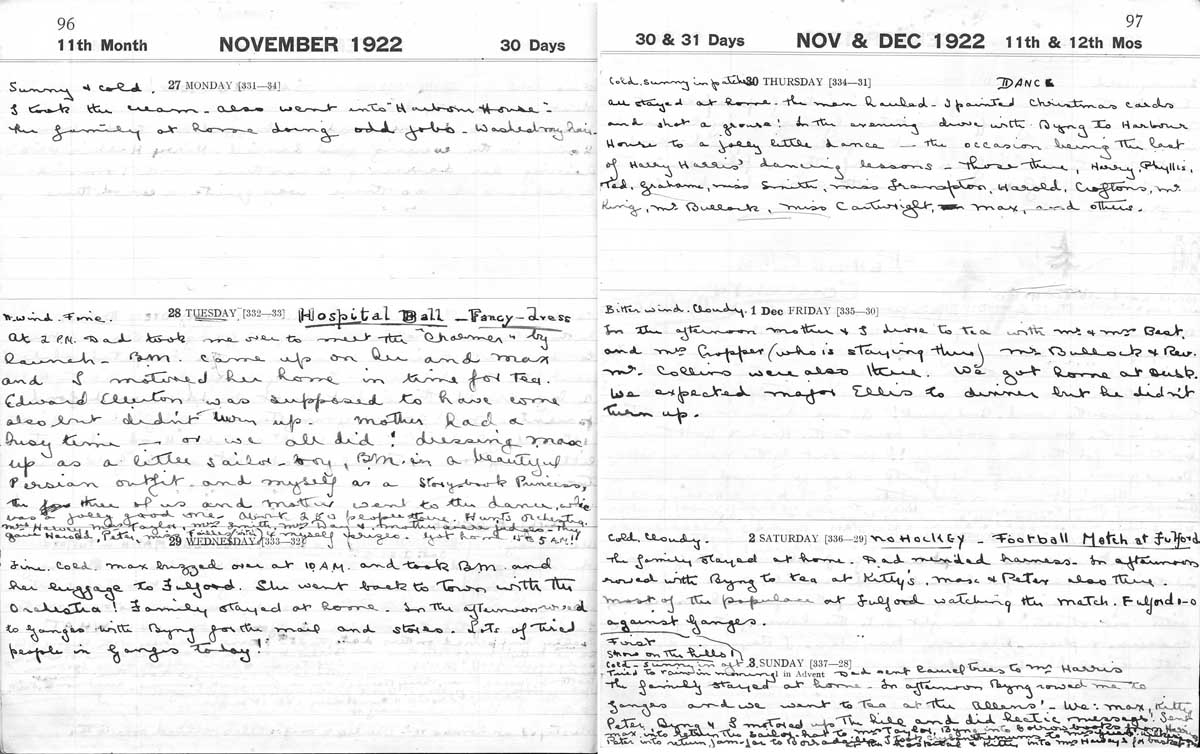 96
11th Month NOVEMBER 1922 30 Days
Sunny & cold. 27 MONDAY [331—34]
I took the cream. also went into "Harbour House".
The family at home doing odd jobs. Washed my hair.
N. wind. Fine. 28 TUESDAY [332—33] Hospital Ball — Fancy-dress
At 2 P.M. Dad took me over to meet the "Charmer" by
launch. B.M. came up on her and Max
and I motored her home in time for tea.
Edward was supposed to have come
also but didn't turn up. Mother had a
busy time — or we all did! dressing Max
up as a little sailor-boy, B.M. in a beautiful
Persian outfit and myself as a Storybook Princess,
The three of us and Mother went to the dance, which
was a jolly good one. About 280 people there. Hunt's Orchestra.
Mrs Harvey, Mrs Taylor, Mrs Smith, Mrs Day & Mother were judges. They
gave Harold, Peter, Miss & myself prizes. Got home at 5 A.M.!!
29 WEDNESDAY [333—32]
Fine. Cold. Max buzzed over at 10 A.M. and took B.M. and
her luggage to Fulford. She went back to Town with the
Orchestra! Family stayed at home. In the afternoon
to Ganges with Byng for the mail and stores. Lots of tired
people in Ganges today!
97
30 & 31 Days NOV & DEC 1922 11th & 12th Mos
Cold. Sunny in patches 30 THURSDAY [334—31] DANCE
All stayed at home. The men hauled. I painted Christmas cards
and shot a grouse! In the evening drove with Byng to Harbour
House to a jolly little dance — the occasion being the last
of Harry Harris' dancing lessons — Those there, Harry, Phyllis,
Ted, Grahame, Miss Smith, Miss Frampton, Harold, Croftons, Mr
King, Mr Bullock, Miss Cartwright, Max, and others.
Bitter wind. Cloudy. 1 Dec FRIDAY [335—30]
In the afternoon Mother & I drove to tea with Mr & Mrs Best.
and Mrs Cropper (who is staying there) Mr Bullock & Rev.
Mr. Collins were also there. We got home at dusk.
We expected Major Ellis to dinner but he didn't
turn up.
Cold. Cloudy. 2 SATURDAY [336—29] NO HOCKEY - Football Match at Fulford
The family stayed at home. Dad mended harness. In afternoon
rowed with Byng to tea at Kitty's, Max & Peter also there.
Most of the populace at Fulford watching the match. Fulford 1-0
against Ganges.
First
snow on the hills!
Cold - Sunny in aft. 3 SUNDAY [337—28]
Tried to rain in morning! in Advent Dad sent laurel trees to Mr Harris
The family stayed at home. In afternoon Byng rowed me to
Ganges and we went to tea at the Allens' - We: Max, Kitty
Peter, Byng & I motored up the hill and did hectic messages! Sent
Max into return the sailor-hat to Mr Taylor, Byng into
Peter into return jam-jar to